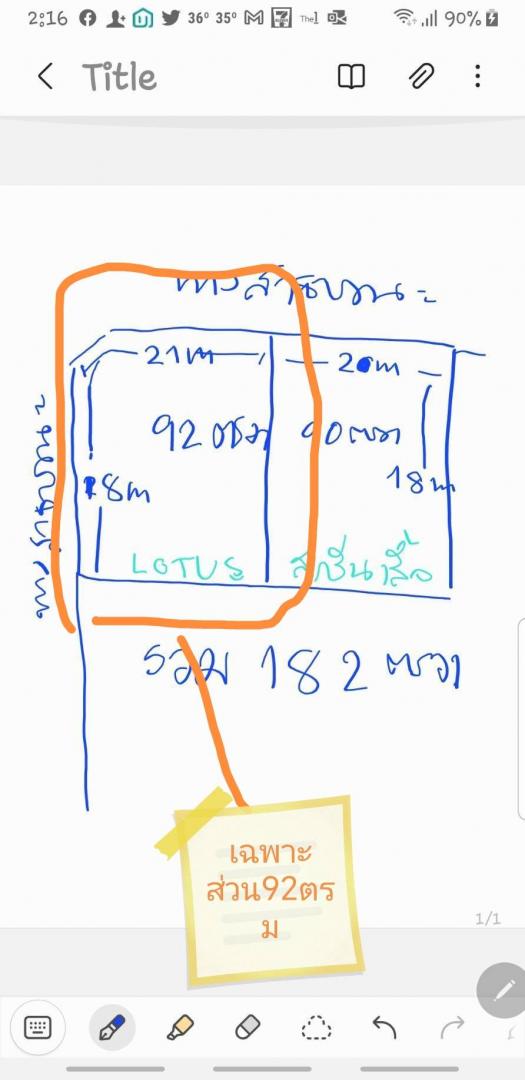 2:16 36° 35° The1 90%
Title
ทางสาธารณะ
21m 20m
92 ตรว 90 ตรว
18m 18m
ทางสาธารณะ
LOTUS
รวม 182 ตรวา
เฉพาะ
ส่วน92ตร
ม
1/1